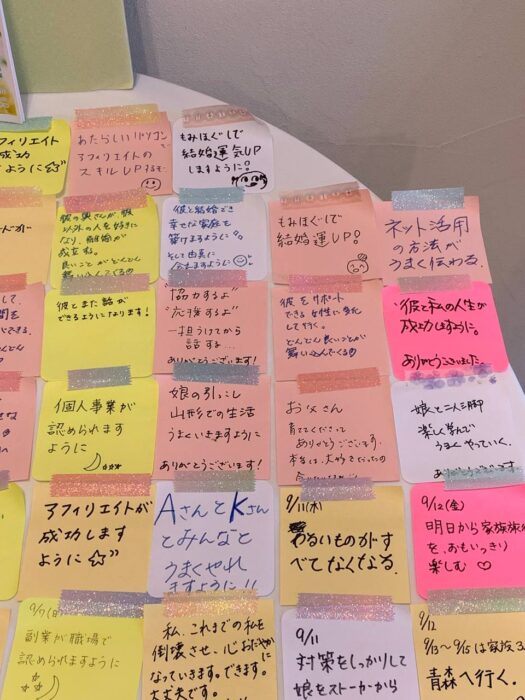 アフィリエイト
成功
ますように☆
あたらしいパソコン
アフィリエイトの
スキルUPするぞ
もみほぐしで
結婚運気UP
しますように!
彼の奥さんが彼
以外の人を好き
になり、離婚が
成立する。
良いことがどんどん
舞い込んでくる
彼と結婚でき
幸せな家庭を
築けますように
そして由真に
会えますように
もみほぐしで
結婚運UP!
ネット活用
の方法が
うまく伝わる。
彼とまた話が
できるようになります!
"協力するよ"
"応援するよ"
一担うけてから
話する…
ありがとうございます!
彼をサポート
できる女性に変化
して行く。
どんどん良いことが
舞い込んでくる
彼と私の人生が
成功しますように。
ありがとうございました。
個人事業が
認められます
ように
娘の引っこし
山形での生活
うまくいきますように
ありがとうございます!
お父さん
育ててくださって
ありがとうございます。
本当は、大好きだったの
娘と二人三脚
楽しく学んで
うまくやっていく。
ありがとうございます
アフィリエイトが
成功します
ように☆"
AさんとKさん
とみんなと
うまくやれ
ますように!!
9/11(木)
わるいものがす
べてなくなる.
9/12(金)
明日から家族旅行
を、おもいっきり
楽しむ♡
9/7(日)
副業が職場で
認められますように
私、これまでの私を
倒壊させ、心おだやかに
なっていきます。できます。
大丈夫です。
9/11
対策をしっかりして
娘をストーカーから
9/12
9/13〜9/15は家族3
青森へ行く.